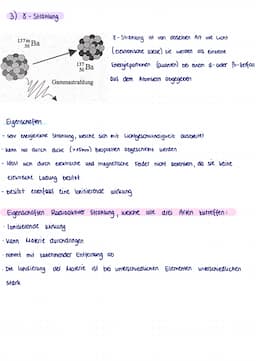 3) γ - Strahlung
137m
56 Ba
137
56 Ba
Gammastrahlung
γ-Strahlung ist von derselben Art wie Licht
(elektronische Welle) sie werden als einzelne
Energieportionen (Quanten) bei einem α- oder β-Zerfall
aus dem Atomkern abgegeben
Eigenschaften
- sehr energiereiche Strahlung, welche sich mit Lichtgeschwindigkeit ausbreitet
- kann nur durch dicke Bleiplatten abgeschirmt werden
- lässt sich durch elektrische und magnetische Felder nicht ablenken, da sie keine
elektrische Ladung besitzt
- besitzt ebenfalls eine ionisierende Wirkung
Eigenschaften Radioaktiver Strahlung, welche alle drei Arten betreffen:
- ionisierende Wirkung
- kann Materie durchdringen
- nimmt mit zunehmender Entfernung ab
- Die Ionisierung der Materie ist bei unterschiedlichen Elementen unterschiedlich
stark